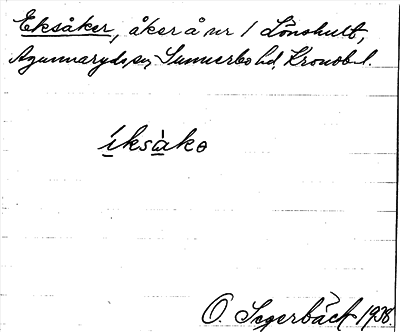 Eksåker, åker å nr 1 Lönshult,
Agunnaryds sn, Sunnerbo hd, Kronob. l.
íksàko
O. Segerbäck 1938